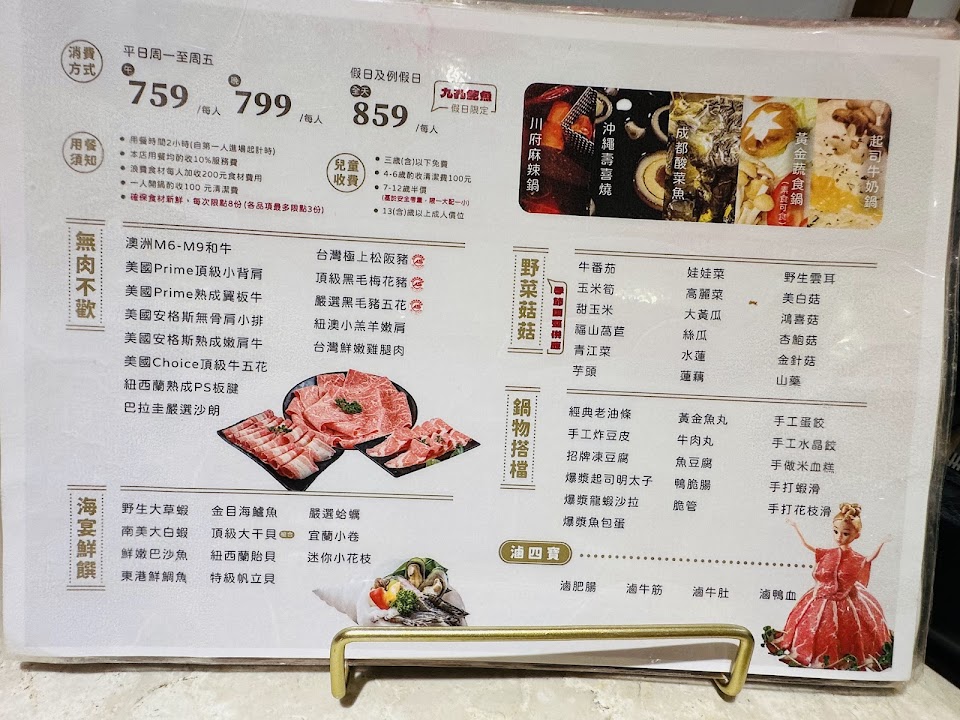 消費
方式
平日周一至周五
午 759 /每人
晚 799 /每人
假日及例假日
全天 859 /每人
九孔鮑魚
假日限定
用餐
須知
用餐時間2小時(自第一人進場起計時)
本店用餐均酌收10%服務費
浪費食材每人加收200元食材費用
一人開鍋酌收100 元清潔費
確保食材新鮮，每次限點8份(各品項最多限點3份)
兒童
收費
三歲(含)以下免費
4-6歲酌收清潔費100元
7-12歲半價
(基於安全考量，限一大配一小)
13(含)歲以上成人價位
川府麻辣鍋
沖繩壽喜燒
成都酸菜魚
黃金蔬食鍋
(素食可食)
起司牛奶鍋
無肉不歡
澳洲M6-M9和牛
美國Prime頂級小背肩
美國Prime熟成翼板牛
美國安格斯無骨肩小排
美國安格斯熟成嫩肩牛
美國Choice頂級牛五花
紐西蘭熟成PS板腱
巴拉圭嚴選沙朗
台灣極上松阪豬
頂級黑毛梅花豬
嚴選黑毛豬五花
紐澳小羔羊嫩肩
台灣鮮嫩雞腿肉
海宴鮮饌
野生大草蝦
南美大白蝦
鮮嫩巴沙魚
東港鮮鯛魚
金目海鱸魚
頂級大干貝
紐西蘭貽貝
特級帆立貝
嚴選蛤蠣
宜蘭小卷
迷你小花枝
野菜菇菇
牛番茄
玉米筍
甜玉米
福山萵苣
青江菜
芋頭
娃娃菜
高麗菜
大黃瓜
絲瓜
水蓮
蓮藕
野生雲耳
美白菇
鴻喜菇
杏鮑菇
金針菇
山藥
鍋物搭檔
經典老油條
手工炸豆皮
招牌凍豆腐
爆漿起司明太子
爆漿龍蝦沙拉
爆漿魚包蛋
黃金魚丸
牛肉丸
魚豆腐
鴨脆腸
脆管
手工蛋餃
手工水晶餃
手做米血糕
手打蝦滑
手打花枝滑
滷四寶
滷肥腸
滷牛筋
滷牛肚
滷鴨血